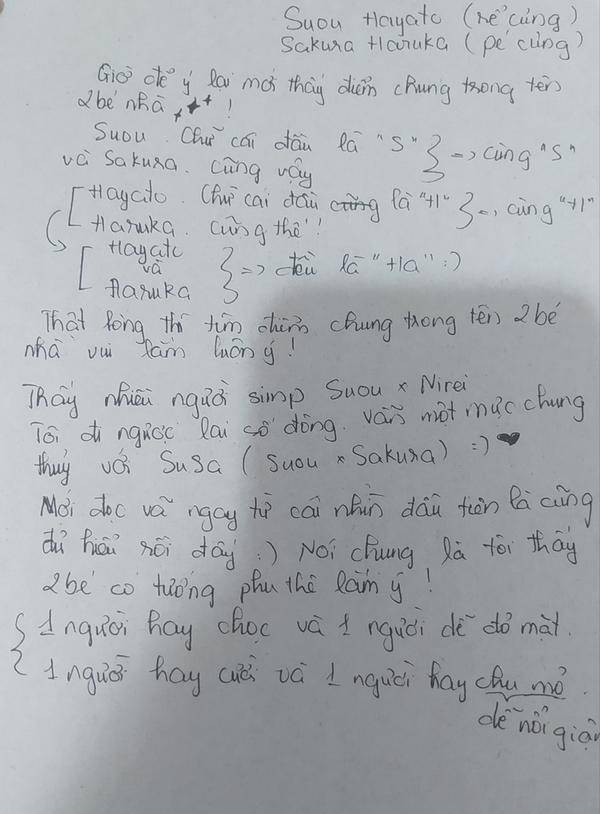 Suou Hayato (rể cưng)
Sakura Haruka (pé cưng)
Giờ để ý lại mới thấy điểm chung trong tên
2 bé nhà !
Suou. Chữ cái đầu là "S" } => cùng "S"
và Sakura. cũng vậy
[ Hayato. Chữ cái đầu cũng là "H" } => cùng "H"
Haruka. cũng thế!
[ Hayato
và } => đều là "Ha" :)
Haruka
Thật lòng thì tìm điểm chung trong tên 2 bé
nhà vui lắm luôn ý!
Thấy nhiều người simp Suou × Nirei
Tôi đi ngược lại số đông. vẫn một mực chung
thuỷ với SuSa (Suou × Sakura) =:) ♥
Mới đọc và ngay từ cái nhìn đầu tiên là cũng
đủ hiểu rồi đấy :) Nói chung là tôi thấy
2 bé có tướng phu thê lắm ý!
{ 1 người hay chọc và 1 người dễ đỏ mặt.
1 người hay cười và 1 người hay chu mỏ.
dễ nổi giận